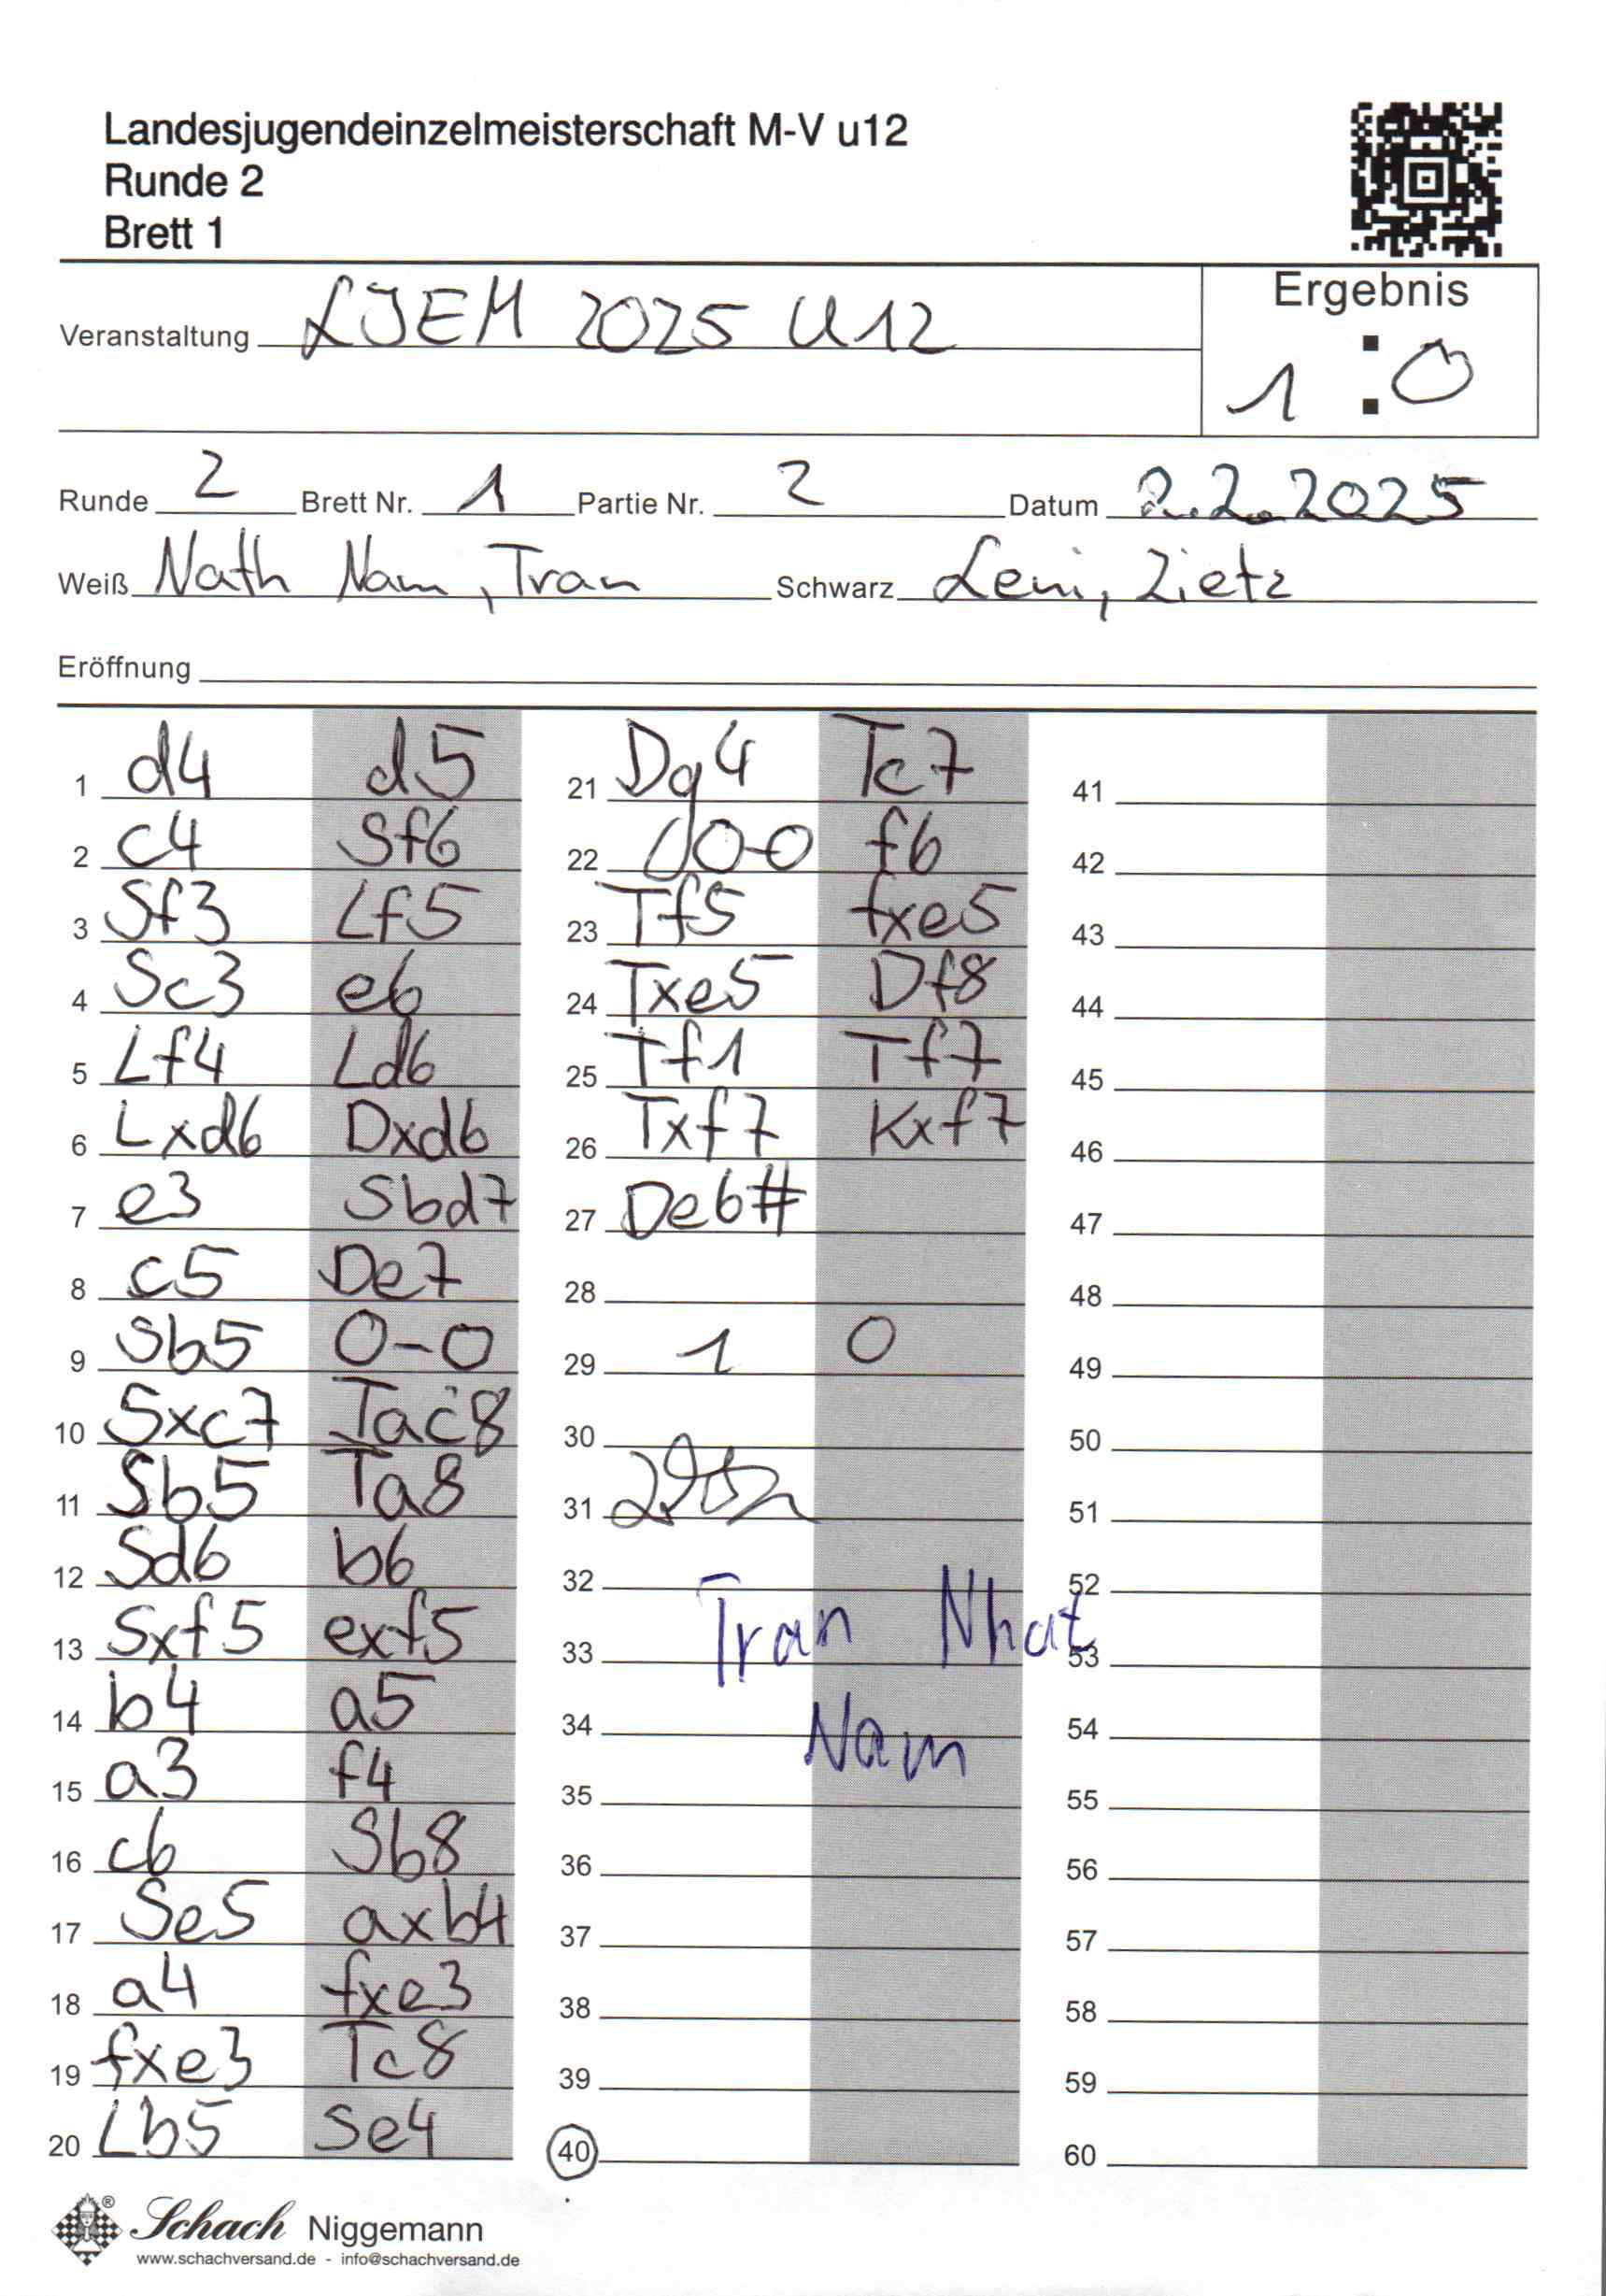 Landesjugendeinzelmeisterschaft M-V u12
Runde 2
Brett 1
Ergebnis
Veranstaltung LJEM 2025 U12
1 : 0
Runde 2 Brett Nr. 1 Partie Nr. 2 Datum 2.2.2025
Weiß Nath Nam, Tran Schwarz Leni, Zietz
Eröffnung
1 d4 d5
2 c4 Sf6
3 Sf3 Lf5
4 Sc3 e6
5 Lf4 Ld6
6 Lxd6 Dxd6
7 e3 Sbd7
8 c5 De7
9 Sb5 0-0
10 Sxc7 Tac8
11 Sb5 Ta8
12 Sd6 b6
13 Sxf5 exf5
14 b4 a5
15 a3 f4
16 c6 Sb8
17 Se5 axb4
18 a4 fxe3
19 fxe3 Tc8
20 Lb5 Se4
21 Dg4 Tc7
22 0-0 f6
23 Tf5 fxe5
24 Txe5 Df8
25 Tf1 Tf7
26 Txf7 Kxf7
27 De6#
28
29 1 0
30
31
32
33 Tran Nhat
34 Nam
35
36
37
38
39
40
41
42
43
44
45
46
47
48
49
50
51
52
53
54
55
56
57
58
59
60
® Schach Niggemann
www.schachversand.de - info@schachversand.de